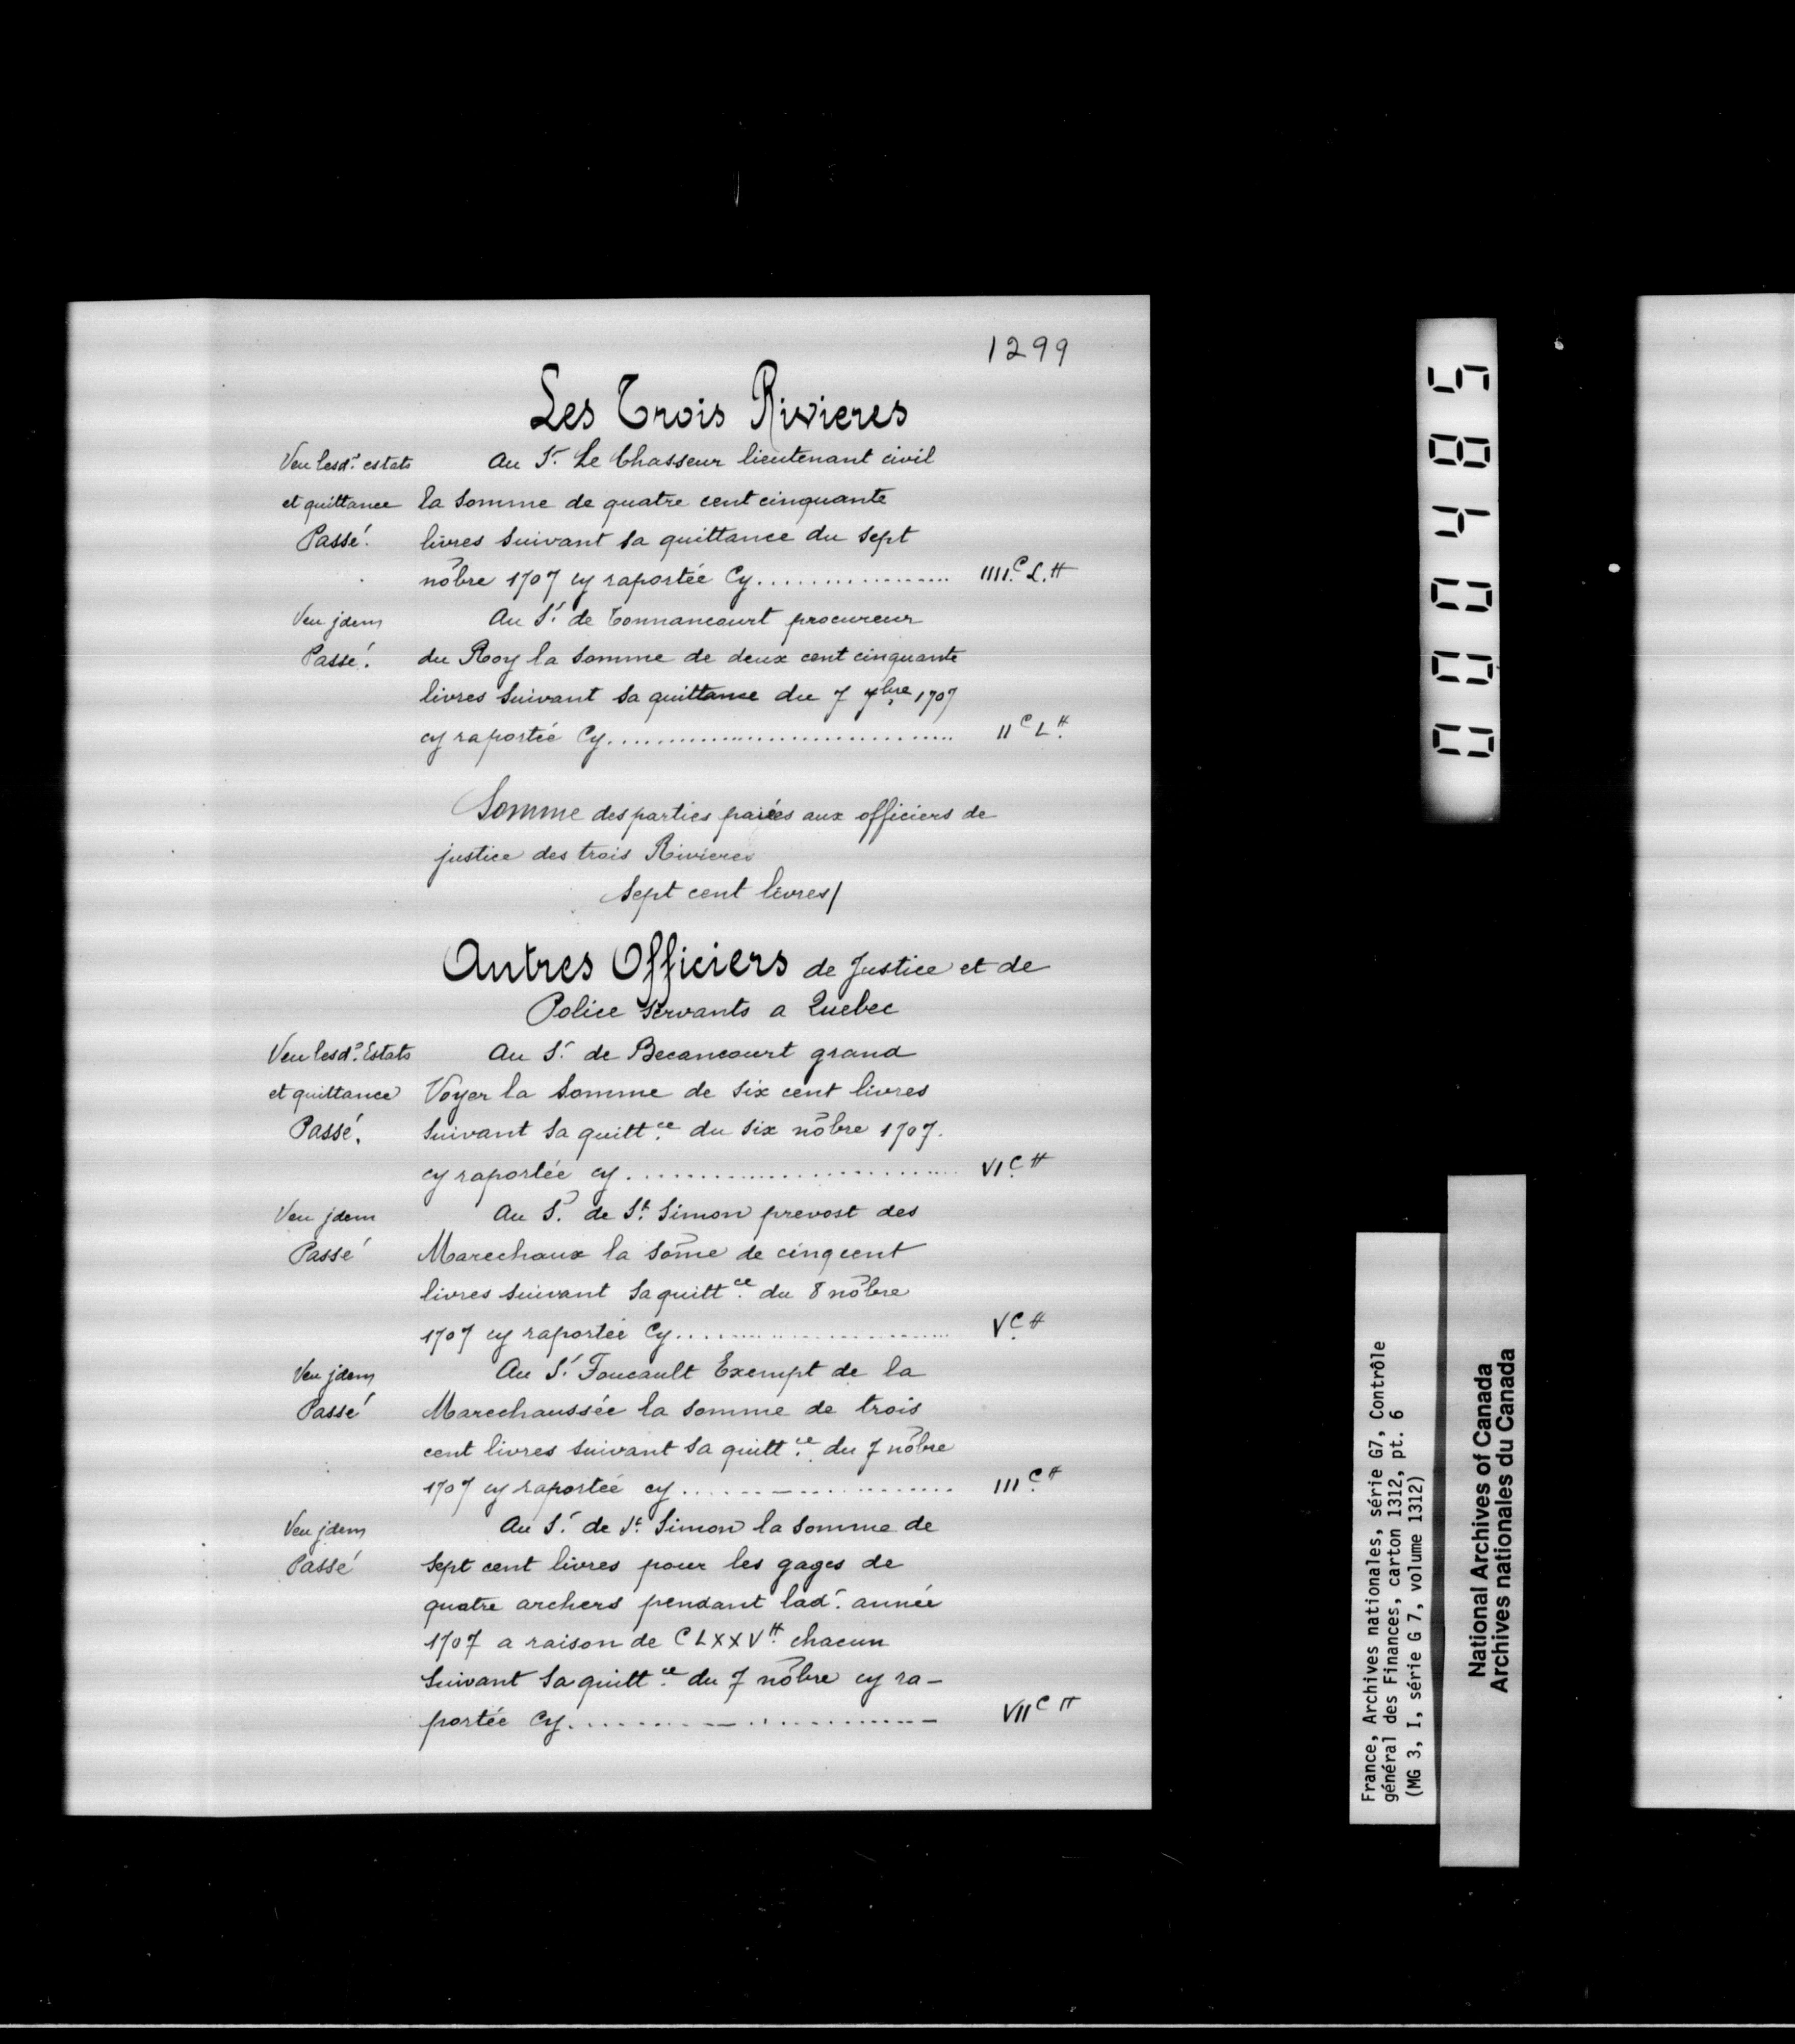 1299
Les Trois Rivieres
Veu lesd.s estats Au Sr. Le Chasseur lieutenant civil
et quittance la somme de quatre cent cinquante
Passé. livres suivant sa quittance du sept
nōbre 1707 cy raportée Cy.................. IIII.C L.ᵗᵗ
Veu jdem Au Sr. de Tonnancourt procureur
Passé. du Roy la somme de deux cent cinquante
livres suivant sa quittance du 7 9bre 1707
cy raportée Cy............................... II C L.ᵗᵗ
Somme des parties paiées aux officiers de
justice des trois Rivieres
Sept cent livres/
Autres Officiers de Justice et de
Police servants a Quebec
Veu lesd.s Estats Au Sr. de Becancourt grand
et quittance Voyer la somme de six cent livres
Passé. suivant sa quitt.ce du six nōbre 1707.
cy raportée cy............................ VI C.ᵗᵗ
Veu jdem Au Sr. de St. Simon prevost des
Passé Marechaux la sōme de cinq cent
livres suivant sa quitt.ce du 8 nōbre
1707 cy raportée Cy......................... V C.ᵗᵗ
Veu jdem Au Sr. Foucault Exempt de la
Passé Marechaussée la somme de trois
cent livres suivant sa quitt.ce du 7 nōbre
1707 cy raportée cy......................... III C.ᵗᵗ
Veu jdem Au Sr. de St. Simon la somme de
Passé sept cent livres pour les gages de
quatre archers pendant lad. année
1707 a raison de CLXXV.ᵗᵗ chacun
suivant sa quitt.ce du 7 nōbre cy ra-
portée Cy......................... VII C ᵗᵗ
000485
France, Archives nationales, série G7, Contrôle
général des Finances, carton 1312, pt. 6
(MG 3, I, série G 7, volume 1312)
National Archives of Canada
Archives nationales du Canada